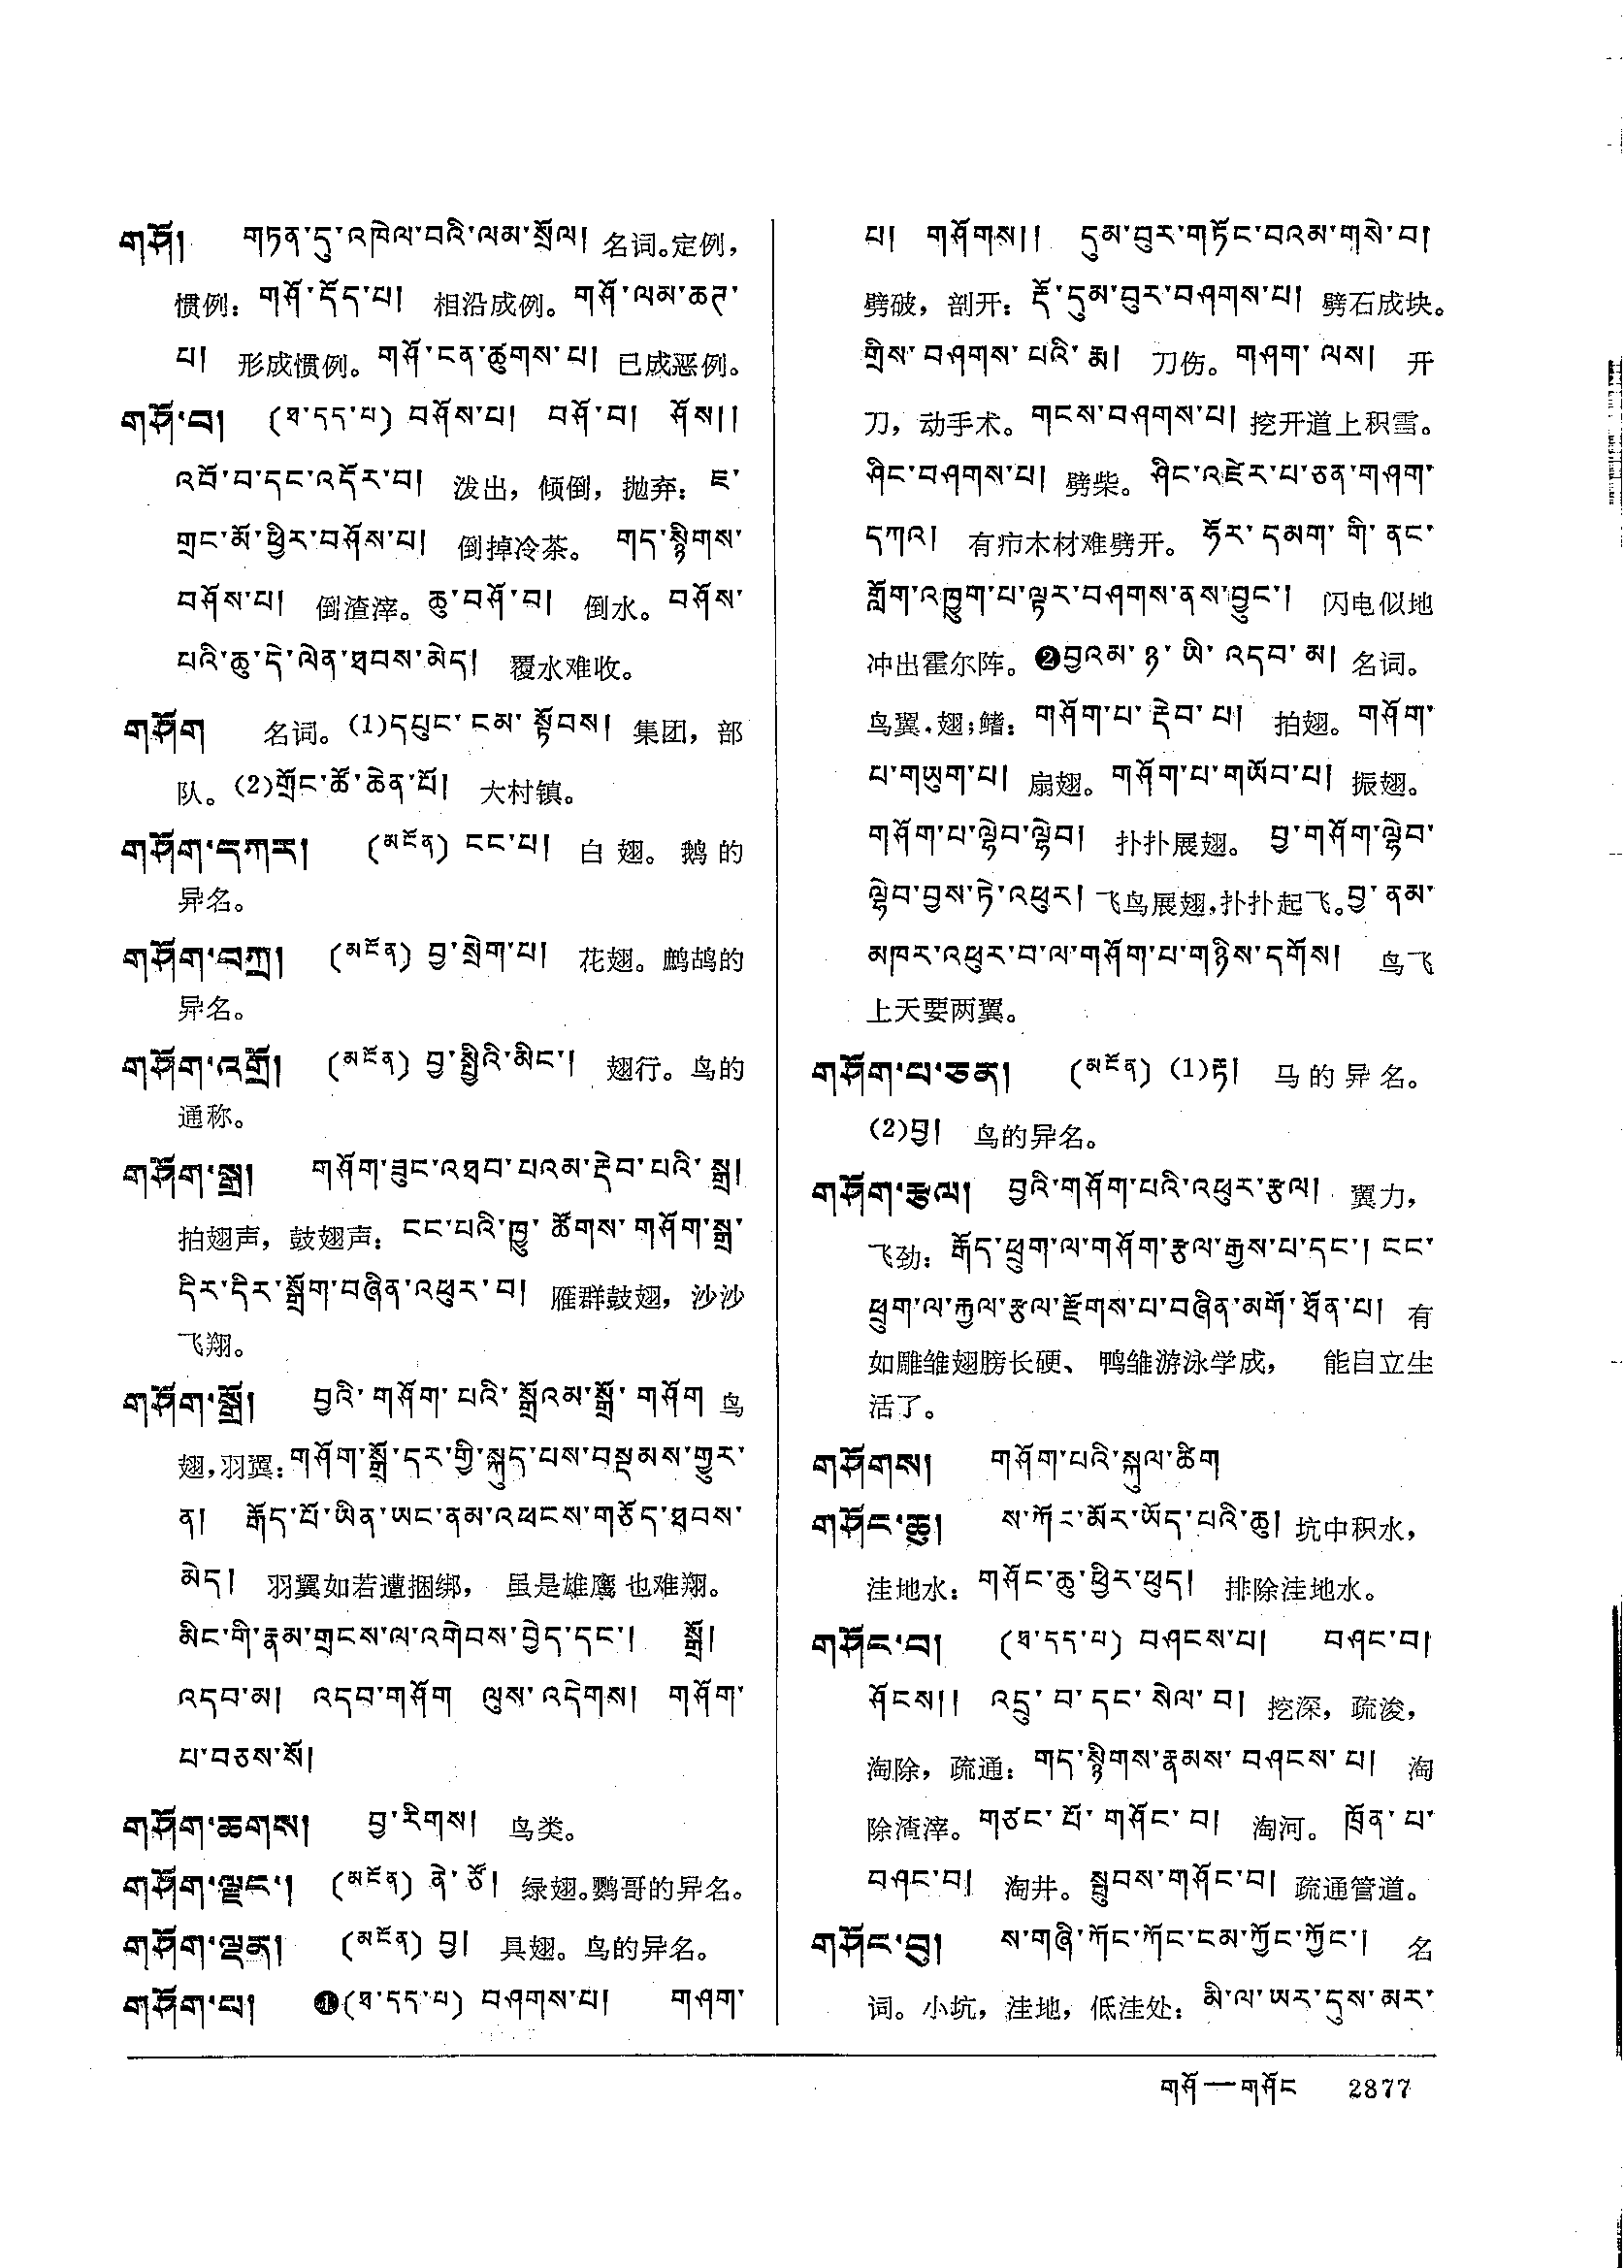 གཤོ། གཏན་དུ་འཁེལ་བའི་ལམ་སྲོལ། 名词。定例，
惯例：གཤོ་དོད་པ། 相沿成例。གཤོ་ལམ་ཆཊ་
པ། 形成惯例。གཤོ་ངན་ཚུགས་པ། 已成恶例。
གཤོ་བ། (ཐ་དད་པ) བཤོས་པ། བཤོ་བ། ཤོས།།
འབོ་བ་དང་འདོར་བ། 泼出，倾倒，抛弃：ཇ་
གྲང་མོ་ཕྱིར་བཤོས་པ། 倒掉冷茶。 གད་སྙིགས་
བཤོས་པ། 倒渣滓。ཆུ་བཤོ་བ། 倒水。བཤོས་
པའི་ཆུ་དེ་ལེན་ཐབས་མེད། 覆水难收。
གཤོག 名词。(1)དཔུང་ངམ་སྟོབས། 集团，部
队。(2)གྲོང་ཚོ་ཆེན་པོ། 大村镇。
གཤོག་དཀར། (མངོན) ངང་པ། 白翅。鹅的
异名。
གཤོག་བཀྲ། (མངོན) བྱ་སྲེག་པ། 花翅。鹧鸪的
异名。
གཤོག་འགྲོ། (མངོན) བྱ་སྤྱིའི་མིང་། 翅行。鸟的
通称。
གཤོག་སྒྲ། གཤོག་ཟུང་འཐབ་པའམ་རྡེབ་པའི་སྒྲ།
拍翅声，鼓翅声：ངང་པའི་ཁྱུ་ཚོགས་གཤོག་སྒྲ་
དིར་དིར་སྒྲོག་བཞིན་འཕུར་བ། 雁群鼓翅，沙沙
飞翔。
གཤོག་སྒྲོ། བྱའི་གཤོག་པའི་སྒྲོའམ་སྒྲོ་གཤོག 鸟
翅，羽翼：གཤོག་སྒྲོ་དར་གྱི་སྐུད་པས་བསྡམས་གྱུར་
ན། རྒོད་པོ་ཡིན་ཡང་ནམ་འཕངས་གཅོད་ཐབས་
མེད། 羽翼如若遭捆绑， 虽是雄鹰也难翔。
མིང་གི་རྣམ་གྲངས་ལ་འགེབས་བྱེད་དང་། སྒྲོ།
འདབ་མ། འདབ་གཤོག ལུས་འདེགས། གཤོག་
པ་བཅས་སོ།
གཤོག་ཆགས། བྱ་རིགས། 鸟类。
གཤོག་ལྗང་། (མངོན) ནེ་ཙོ། 绿翅。鹦哥的异名。
གཤོག་ལྡན། (མངོན) བྱ། 具翅。鸟的异名。
གཤོག་པ། ❶(ཐ་དད་པ) བཤགས་པ། གཤག་
པ། གཤོགས།། དུམ་བུར་གཏོང་བའམ་གསེ་བ།
劈破，剖开：རྡོ་དུམ་བུར་བཤགས་པ། 劈石成块。
གྲིས་བཤགས་པའི་རྨ། 刀伤。གཤག་ལས། 开
刀，动手术。གངས་བཤགས་པ། 挖开道上积雪。
ཤིང་བཤགས་པ། 劈柴。ཤིང་འཛེར་པ་ཅན་གཤག་
དཀའ། 有疖木材难劈开。ཧོར་དམག་གི་ནང་
གློག་འཁྱུག་པ་ལྟར་བཤགས་ནས་བྱུང་། 闪电似地
冲出霍尔阵。❷བྱའམ་ཉ་ཡི་འདབ་མ། 名词。
鸟翼.翅;鳍：གཤོག་པ་རྡེབ་པ། 拍翅。གཤོག་
པ་གཡུག་པ། 扇翅。གཤོག་པ་གཡོབ་པ། 振翅。
གཤོག་པ་ལྡེབ་ལྡེབ། 扑扑展翅。བྱ་གཤོག་ལྡེབ་
ལྡེབ་བྱས་ཏེ་འཕུར། 飞鸟展翅,扑扑起飞。བྱ་ནམ་
མཁར་འཕུར་བ་ལ་གཤོག་པ་གཉིས་དགོས། 鸟飞
上天要两翼。
གཤོག་པ་ཅན། (མངོན) (1)རྟ། 马的异名。
(2)བྱ། 鸟的异名。
གཤོག་རྩལ། བྱའི་གཤོག་པའི་འཕུར་རྩལ། 翼力，
飞劲：རྒོད་ཕྲུག་ལ་གཤོག་རྩལ་རྒྱས་པ་དང་། ངང་
ཕྲུག་ལ་རྐྱལ་རྩལ་རྫོགས་པ་བཞིན་མགོ་ཐོན་པ། 有
如雕雏翅膀长硬、 鸭雏游泳学成， 能自立生
活了。
གཤོགས། གཤོག་པའི་སྐུལ་ཚིག
གཤོང་ཆུ། ས་ཀོང་མོར་ཡོད་པའི་ཆུ། 坑中积水，
洼地水：གཤོང་ཆུ་ཕྱིར་ཕུད། 排除洼地水。
གཤོང་བ། (ཐ་དད་པ) བཤངས་པ། བཤང་བ།
ཤོངས།། འདྲུ་བ་དང་སེལ་བ། 挖深，疏浚，
淘除，疏通：གད་སྙིགས་རྣམས་བཤངས་པ། 淘
除渣滓。གཙང་པོ་གཤོང་བ། 淘河。ཁྲོན་པ་
བཤང་བ། 淘井。སྦུབས་གཤོང་བ། 疏通管道。
གཤོང་བུ། ས་གཞི་ཀོང་ཀོང་ངམ་ཀྱོང་ཀྱོང་། 名
词。小坑，洼地，低洼处：མི་ལ་ཡར་དུས་མར་
གཤོ—གཤོང 2877